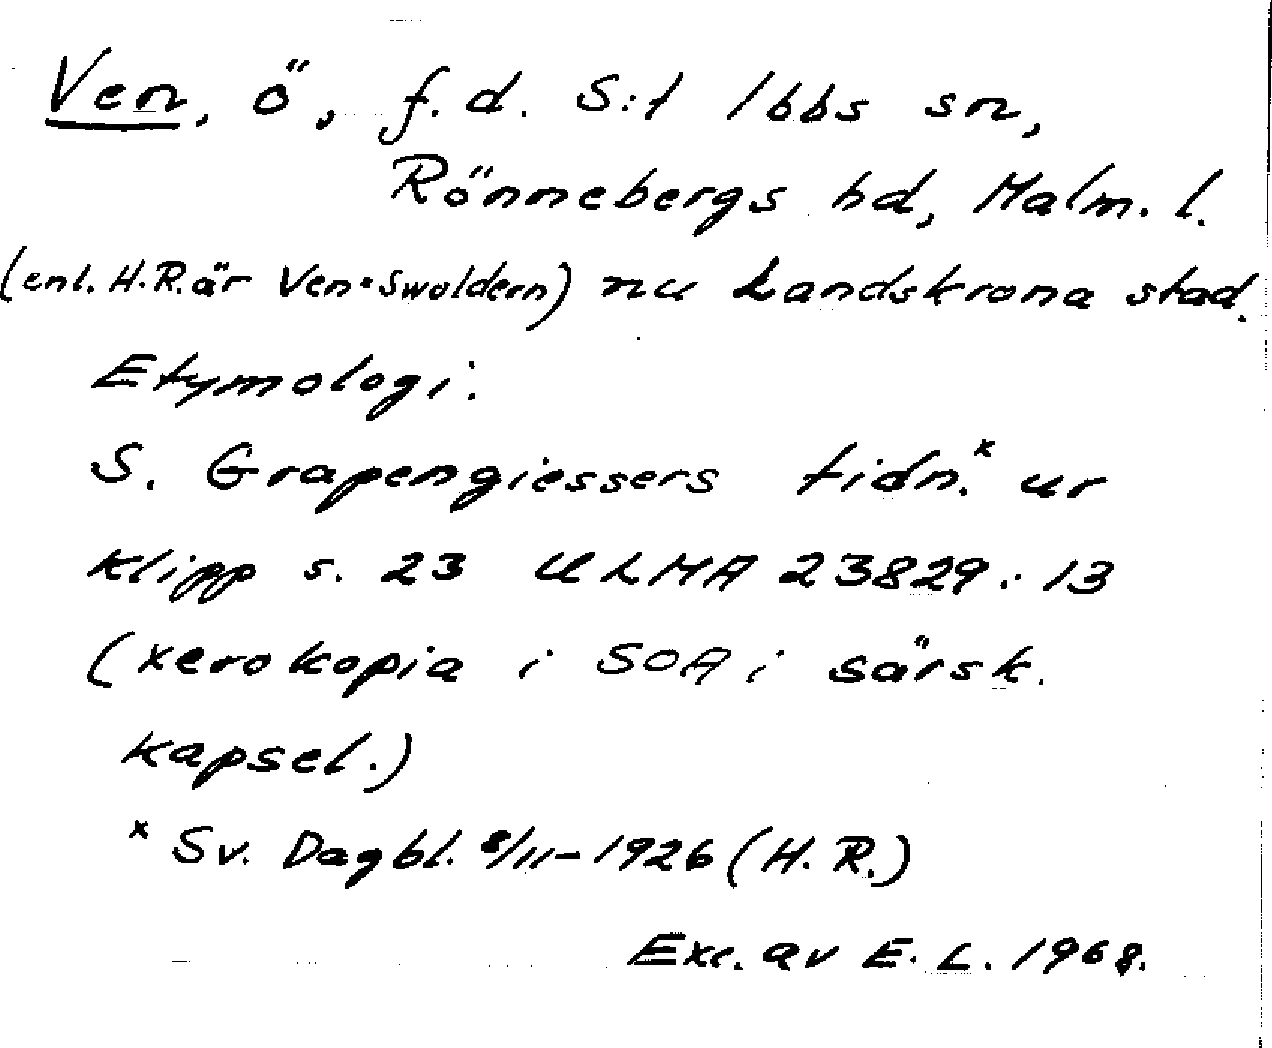 Ven, ö, f.d. S:t Ibbs sn,
Rönnebergs hd, Malm. l.
(enl. H.R. är Ven = Swoldern) nu Landskrona stad.
Etymologi.
S. Grapengiessers tidn.x ur
klipp s. 23 ULMA 23829:13
(xerokopia i SOA i särsk.
kapsel.)
x Sv. Dagbl. 8/11-1926 (H. R.)
Exc. av E. L. 1968.